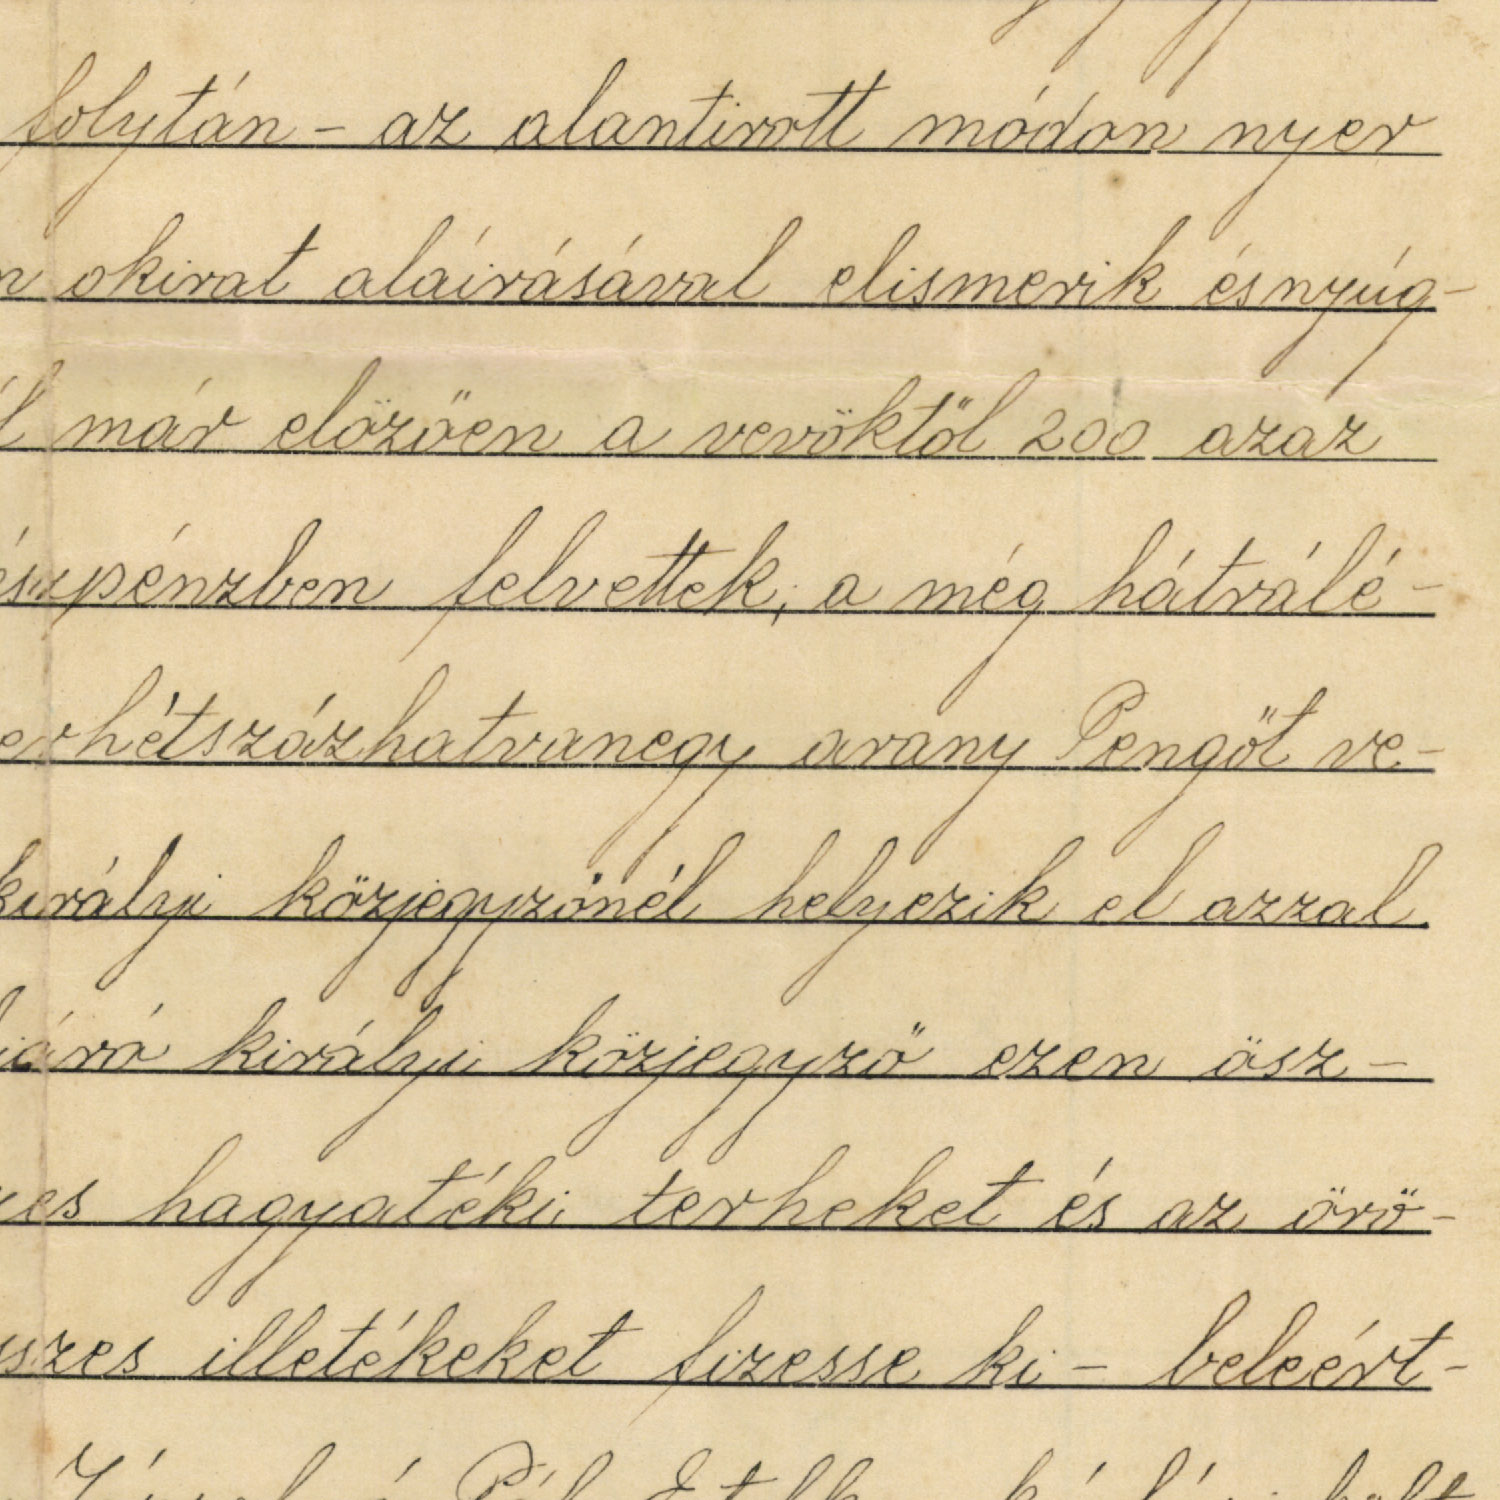 folytán - az alantirott módon nyer
okirat aláirásával elismerik ésnyúg-
már előzően a vevőktől 200 azaz
készpénzben felvettek, a még hátrálé-
erhétszázhatvanegy arany Pengőt ve-
királyi közjegyzőnél helyezik el azzal
járó királyi közjegyző ezen ösz-
yes hagyatéki terheket és az örö-
sszes illetékeket fizesse ki - beleért-